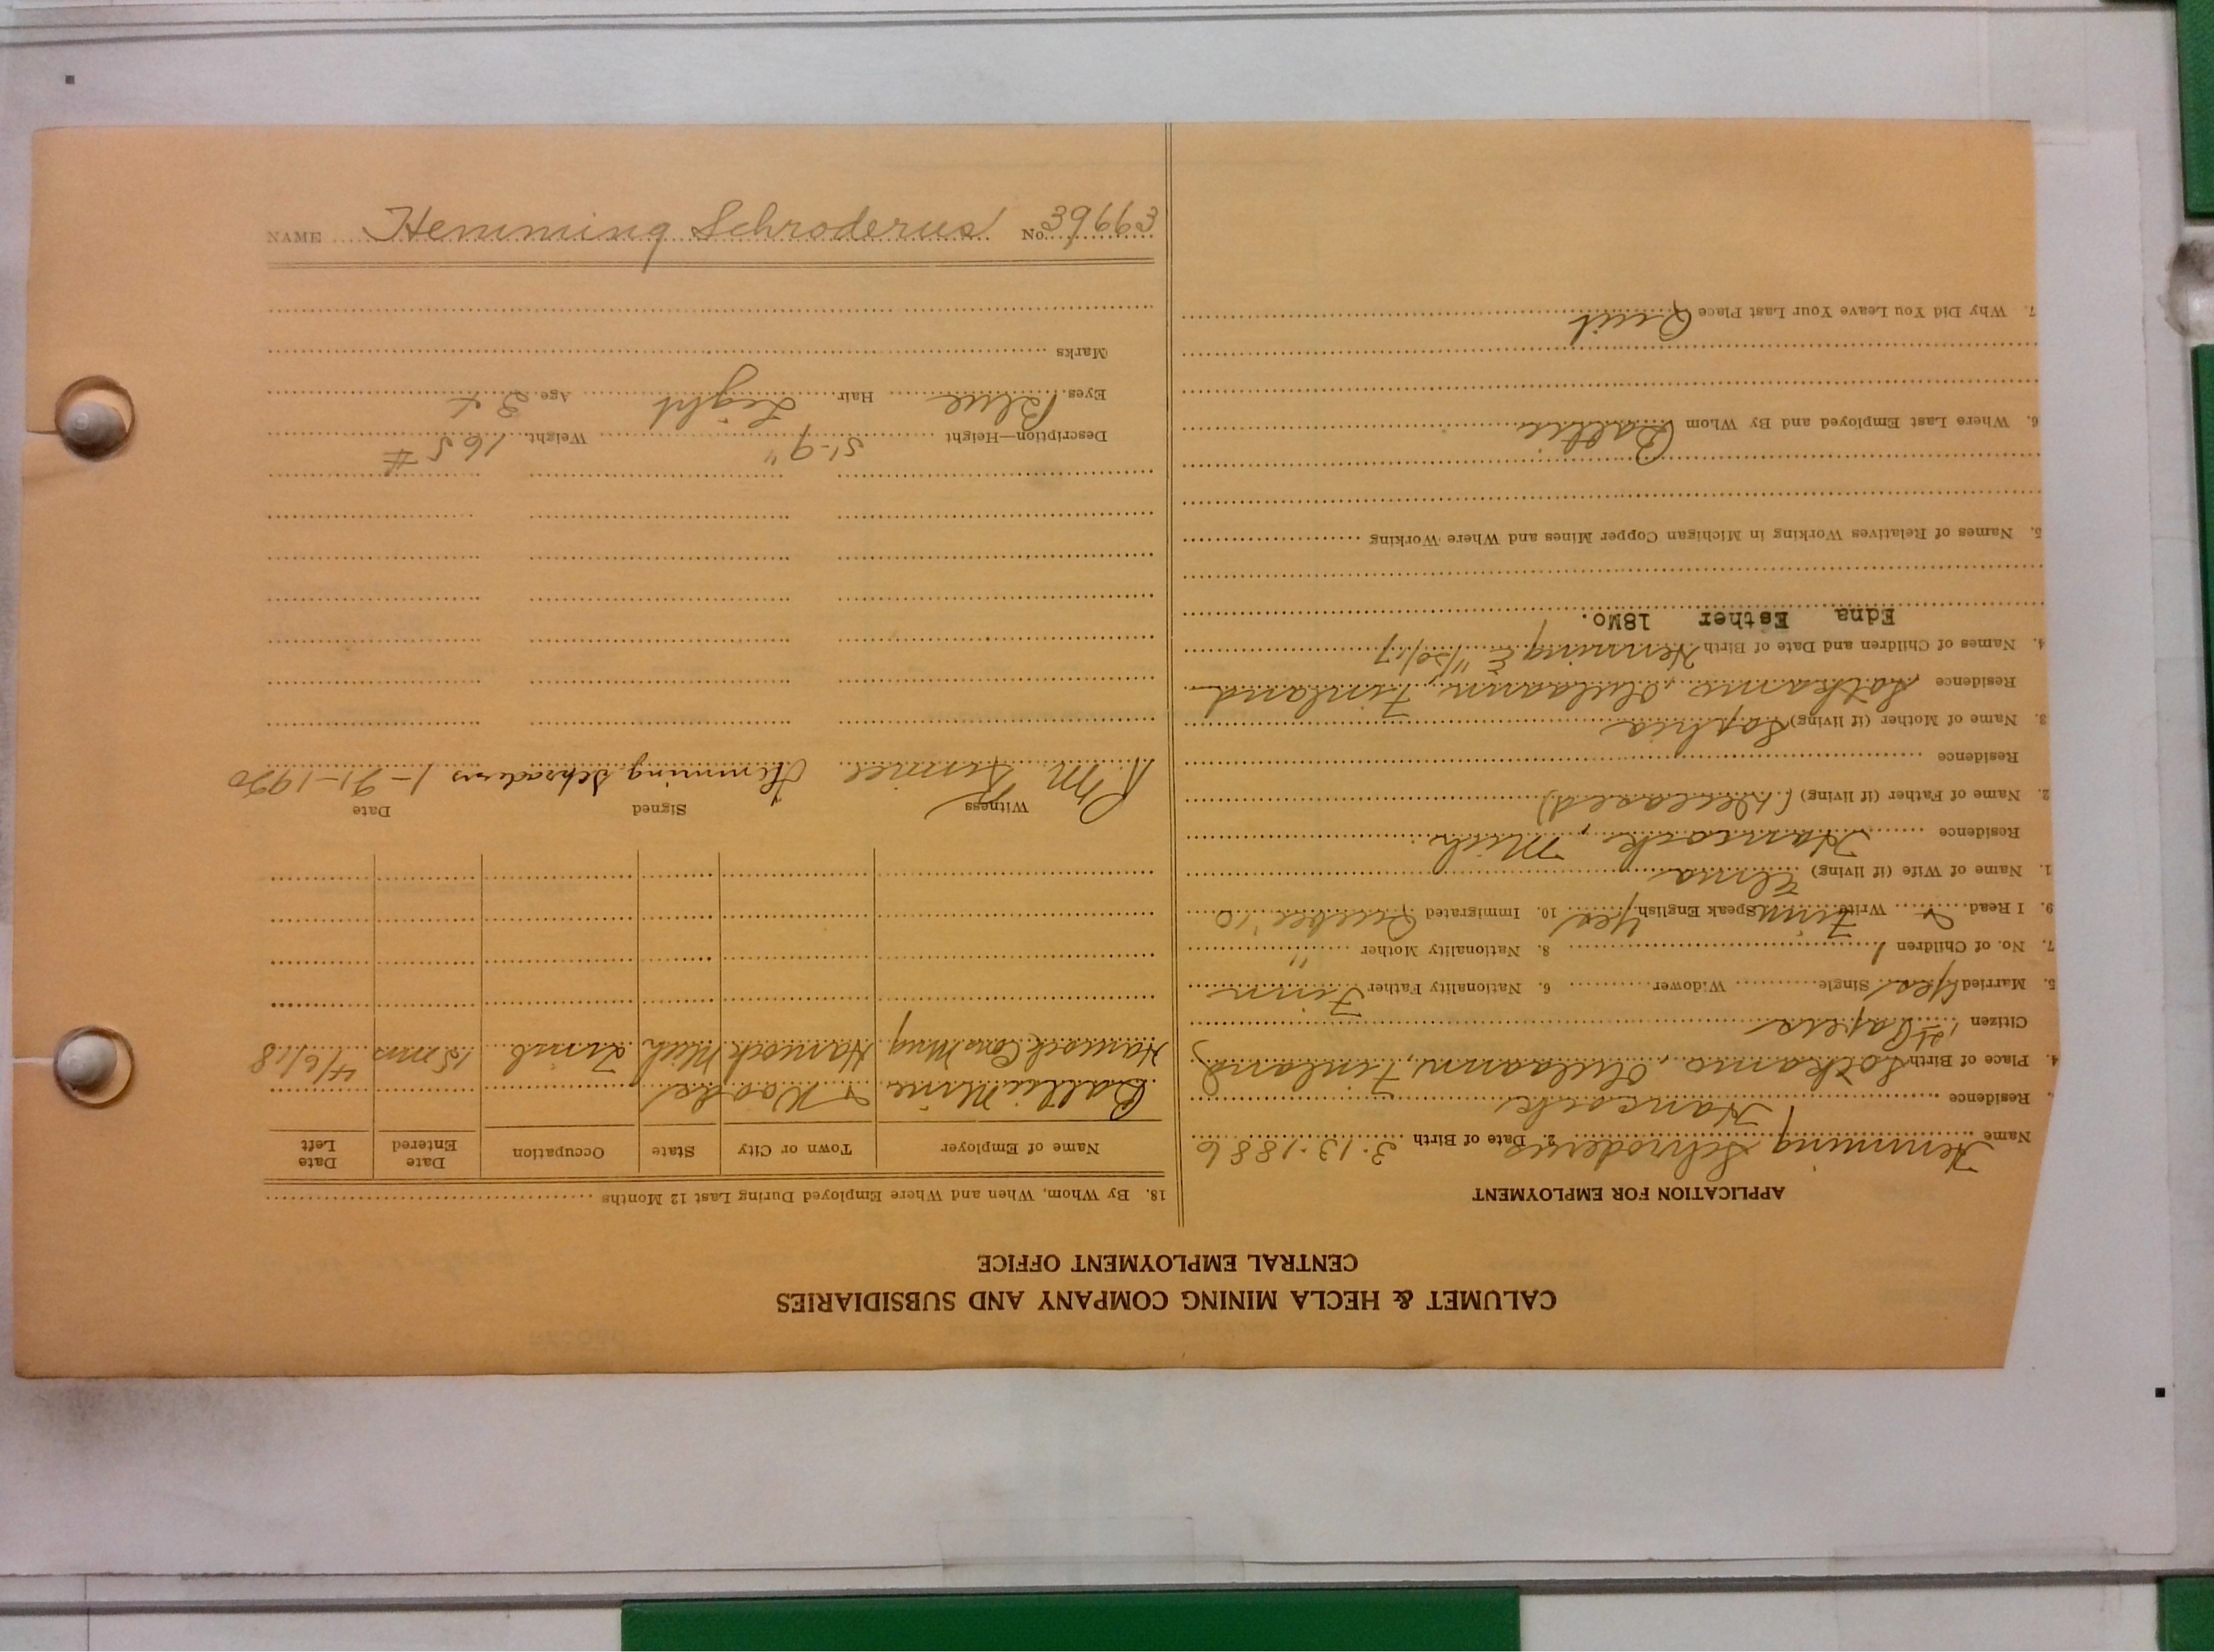 CALUMET & HECLA MINING COMPANY AND SUBSIDIARIES
CENTRAL EMPLOYMENT OFFICE
APPLICATION FOR EMPLOYMENT
Name Hemming Schroderus 2. Date of Birth 3-13-1886
Residence Hancock
4. Place of Birth Sotkamo, Oulaanni, Finland
Citizen 1st Papers
5. Married Yes Single Widower 6. Nationality Father Finn
7. No. of Children 1 8. Nationality Mother "
9. I Read & Write Finn Speak English Yes 10. Immigrated Quebec '10
1. Name of Wife (if living) Elma
Residence Hancock, Mich
2. Name of Father (if living) (Deceased)
Residence
3. Name of Mother (if living) Sophia
Residence Sotkamo, Oulaanni, Finland
4. Names of Children and Date of Birth Henning E 11/20/17
Edna Esther 18Mo.
5. Names of Relatives Working in Michigan Copper Mines and Where Working
6. Where Last Employed and By Whom Baltic
7. Why Did You Leave Your Last Place Quit
18. By Whom, When and Where Employed During Last 12 Months
Name of Employer Town or City State Occupation Date Entered Date Left
Baltic Mine & Woods
Hancock Cons Mng Hancock Mich Mich Timb 15 mos 4/6/18
Witness Signed Date
Hemming Schroderus 1-21-1920
Description—Height 5'-9" Weight 165 #
Eyes Blue Hair Light Age
Marks
NAME Hemming Schroderus No. 39663